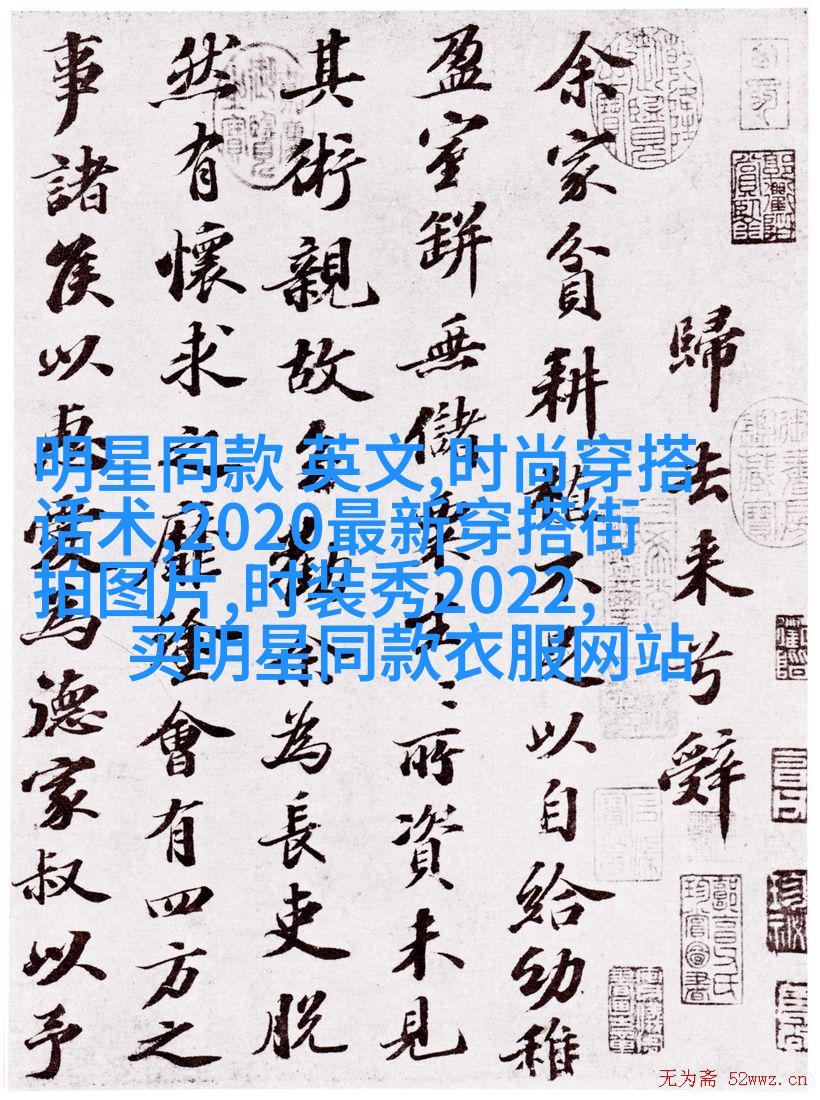 歸去来兮辭
余家貧耕植不足以自給幼稚
盈室缾無儲粟生〻所資未見
其術親故多勸余為長吏脱
然有懷求之靡途會有四方之
事諸侯以惠愛為德家叔以予
明星同款 英文,时尚穿搭
话术,2020最新穿搭街
拍图片,时装秀2022,
买明星同款衣服网站
无为斋 52wwz.cn